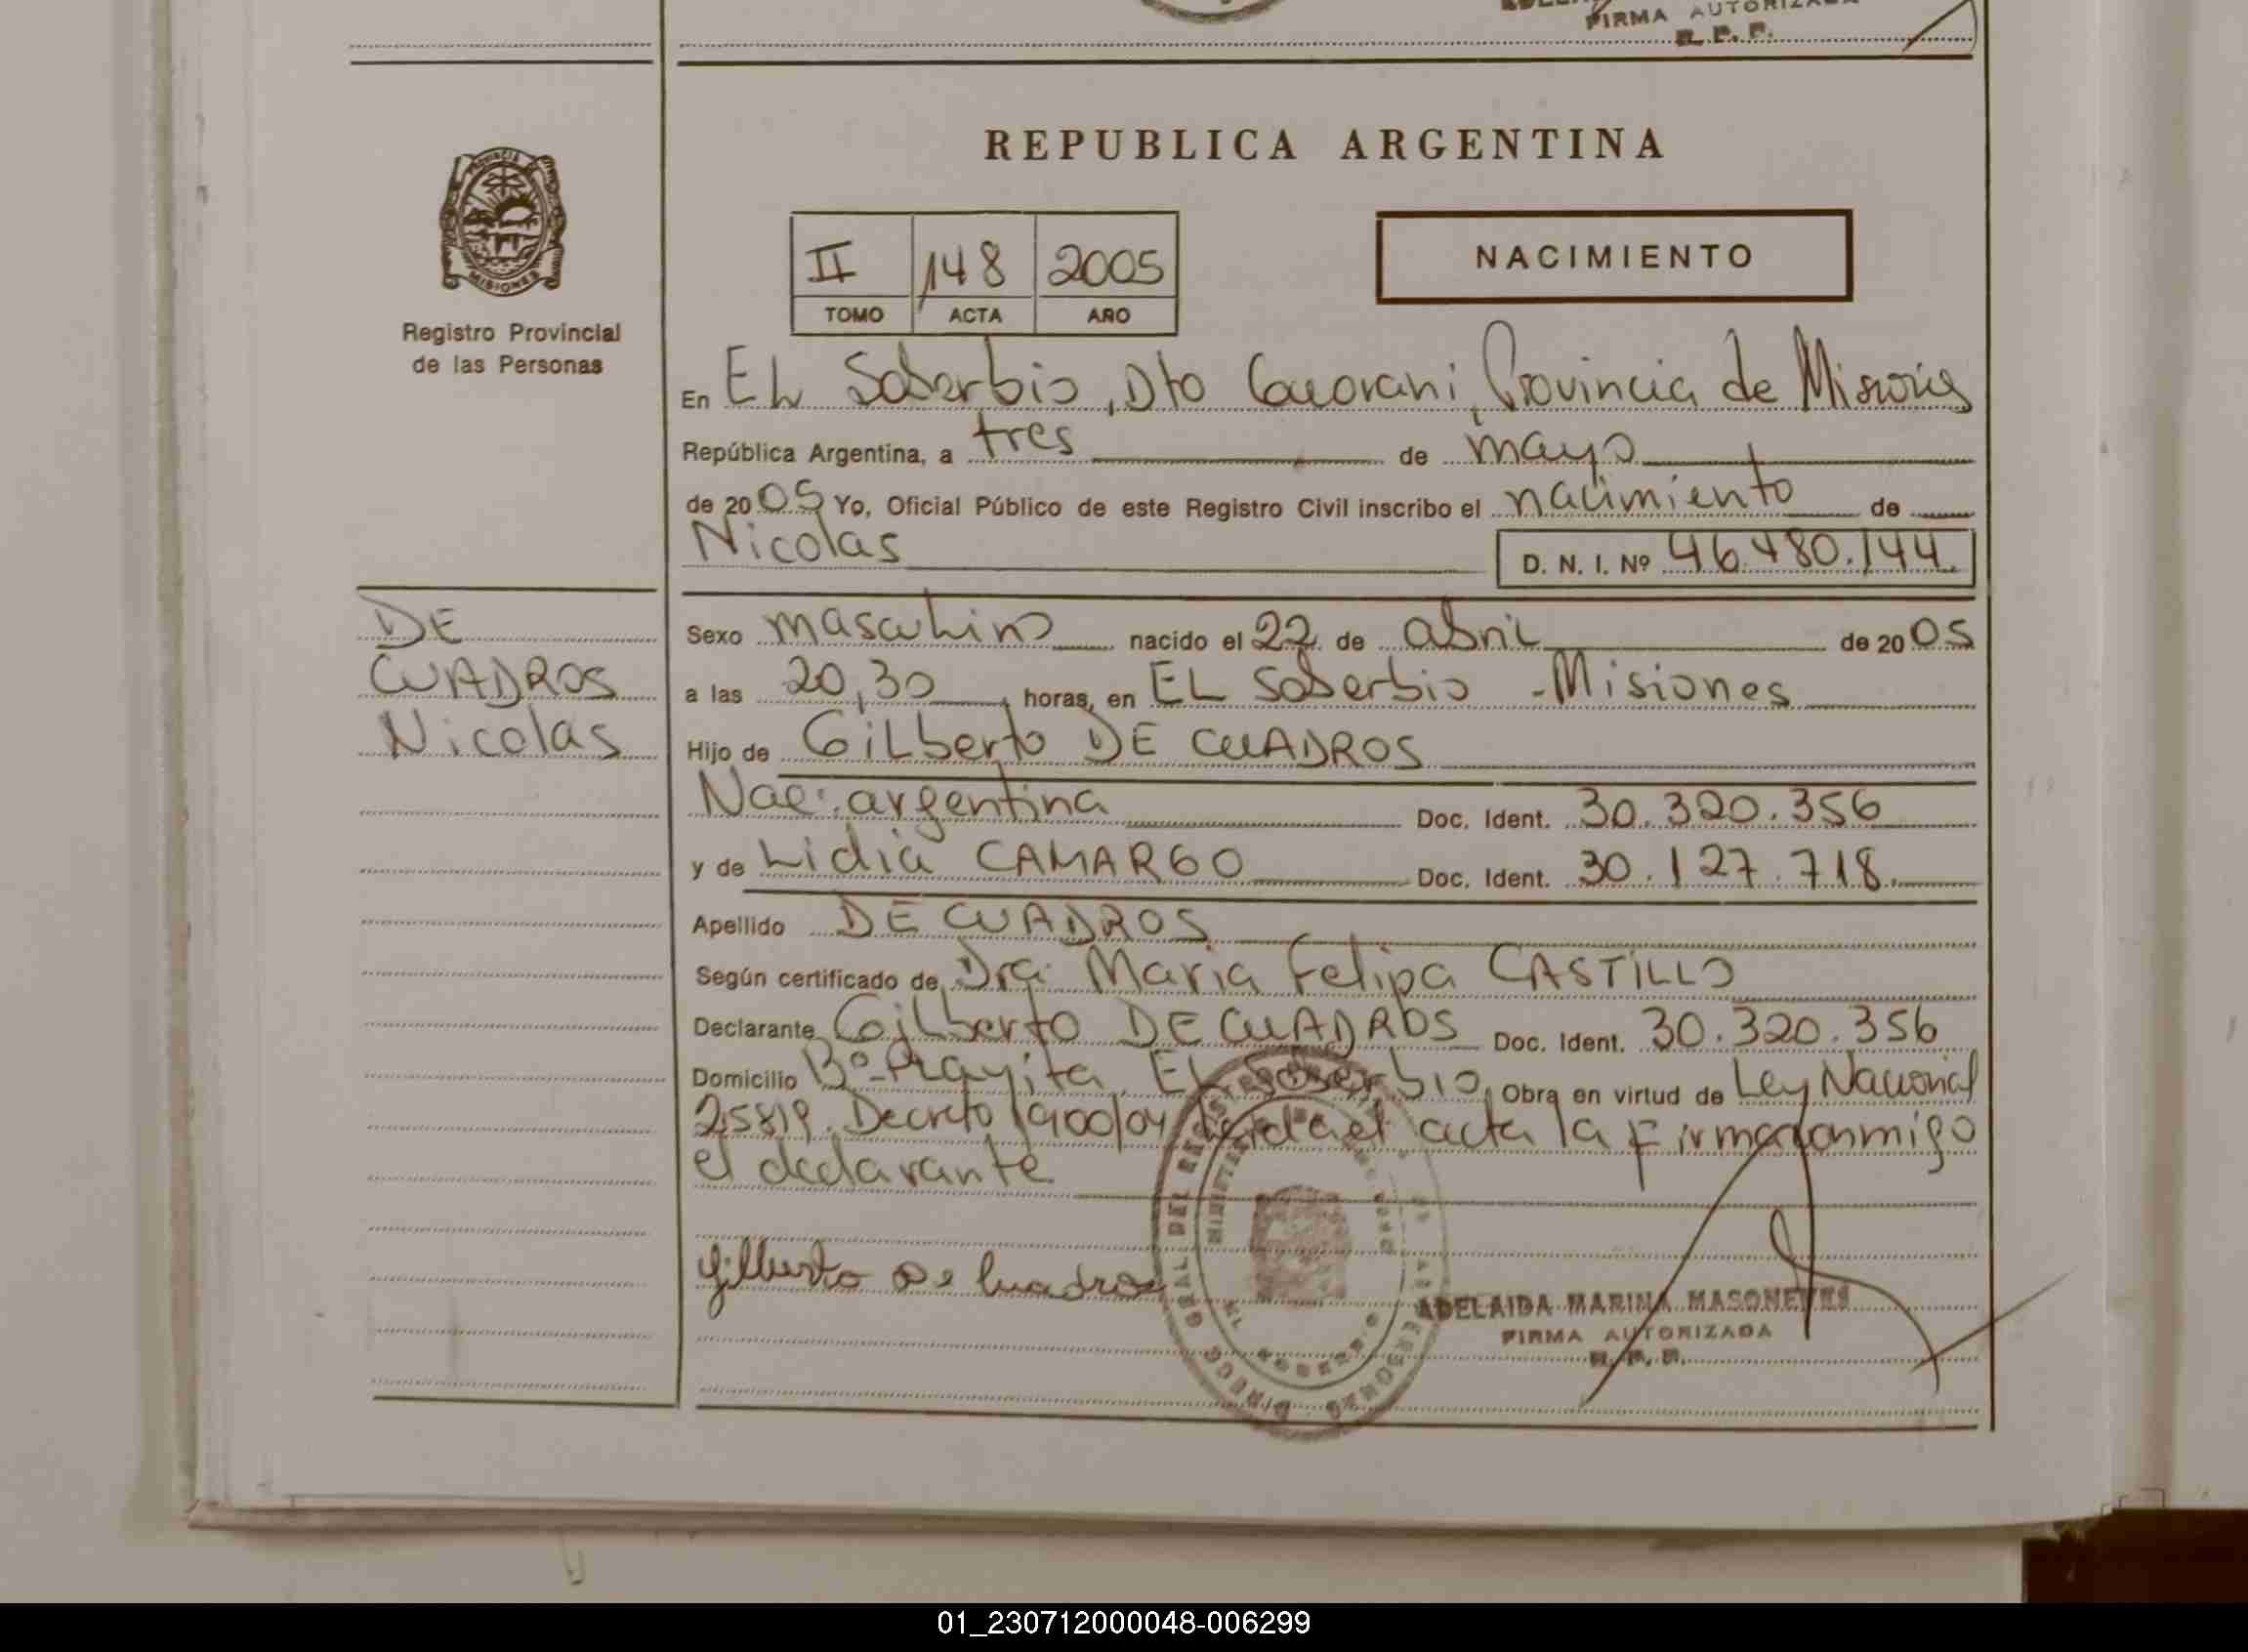 FIRMA AUTORIZADA
R. P. P.
PROVINCIA
MISIONES
Registro Provincial
de las Personas
REPUBLICA ARGENTINA
II 148 2005
TOMO ACTA AÑO
NACIMIENTO
En EL Soberbio, Dto Guarani, Provincia de Misiones
República Argentina, a tres de mayo
de 2005 Yo, Oficial Público de este Registro Civil inscribo el nacimiento de
Nicolas
D. N. I. Nº 46.480.144.
DE
CUADROS
Nicolas
Sexo masculino nacido el 22 de abril de 2005
a las 20,30 horas, en EL Soberbio - Misiones
Hijo de Gilberto DE CUADROS
Nac: argentina Doc. Ident. 30.320.356
y de Lidia CAMARGO Doc. Ident. 30.127.718.
Apellido DE CUADROS
Según certificado de Dra. Maria Felipa CASTILLO
Declarante Gilberto DE CUADROS Doc. Ident. 30.320.356
Domicilio Bº Playita, EL Soberbio, Obra en virtud de Ley Nacional
25819. Decreto 1900/04 Leida el acta la firma conmigo
el declarante
Gilberto De Cuadros
ADELAIDA MARINA
FIRMA AUTORIZADA
01_230712000048-006299